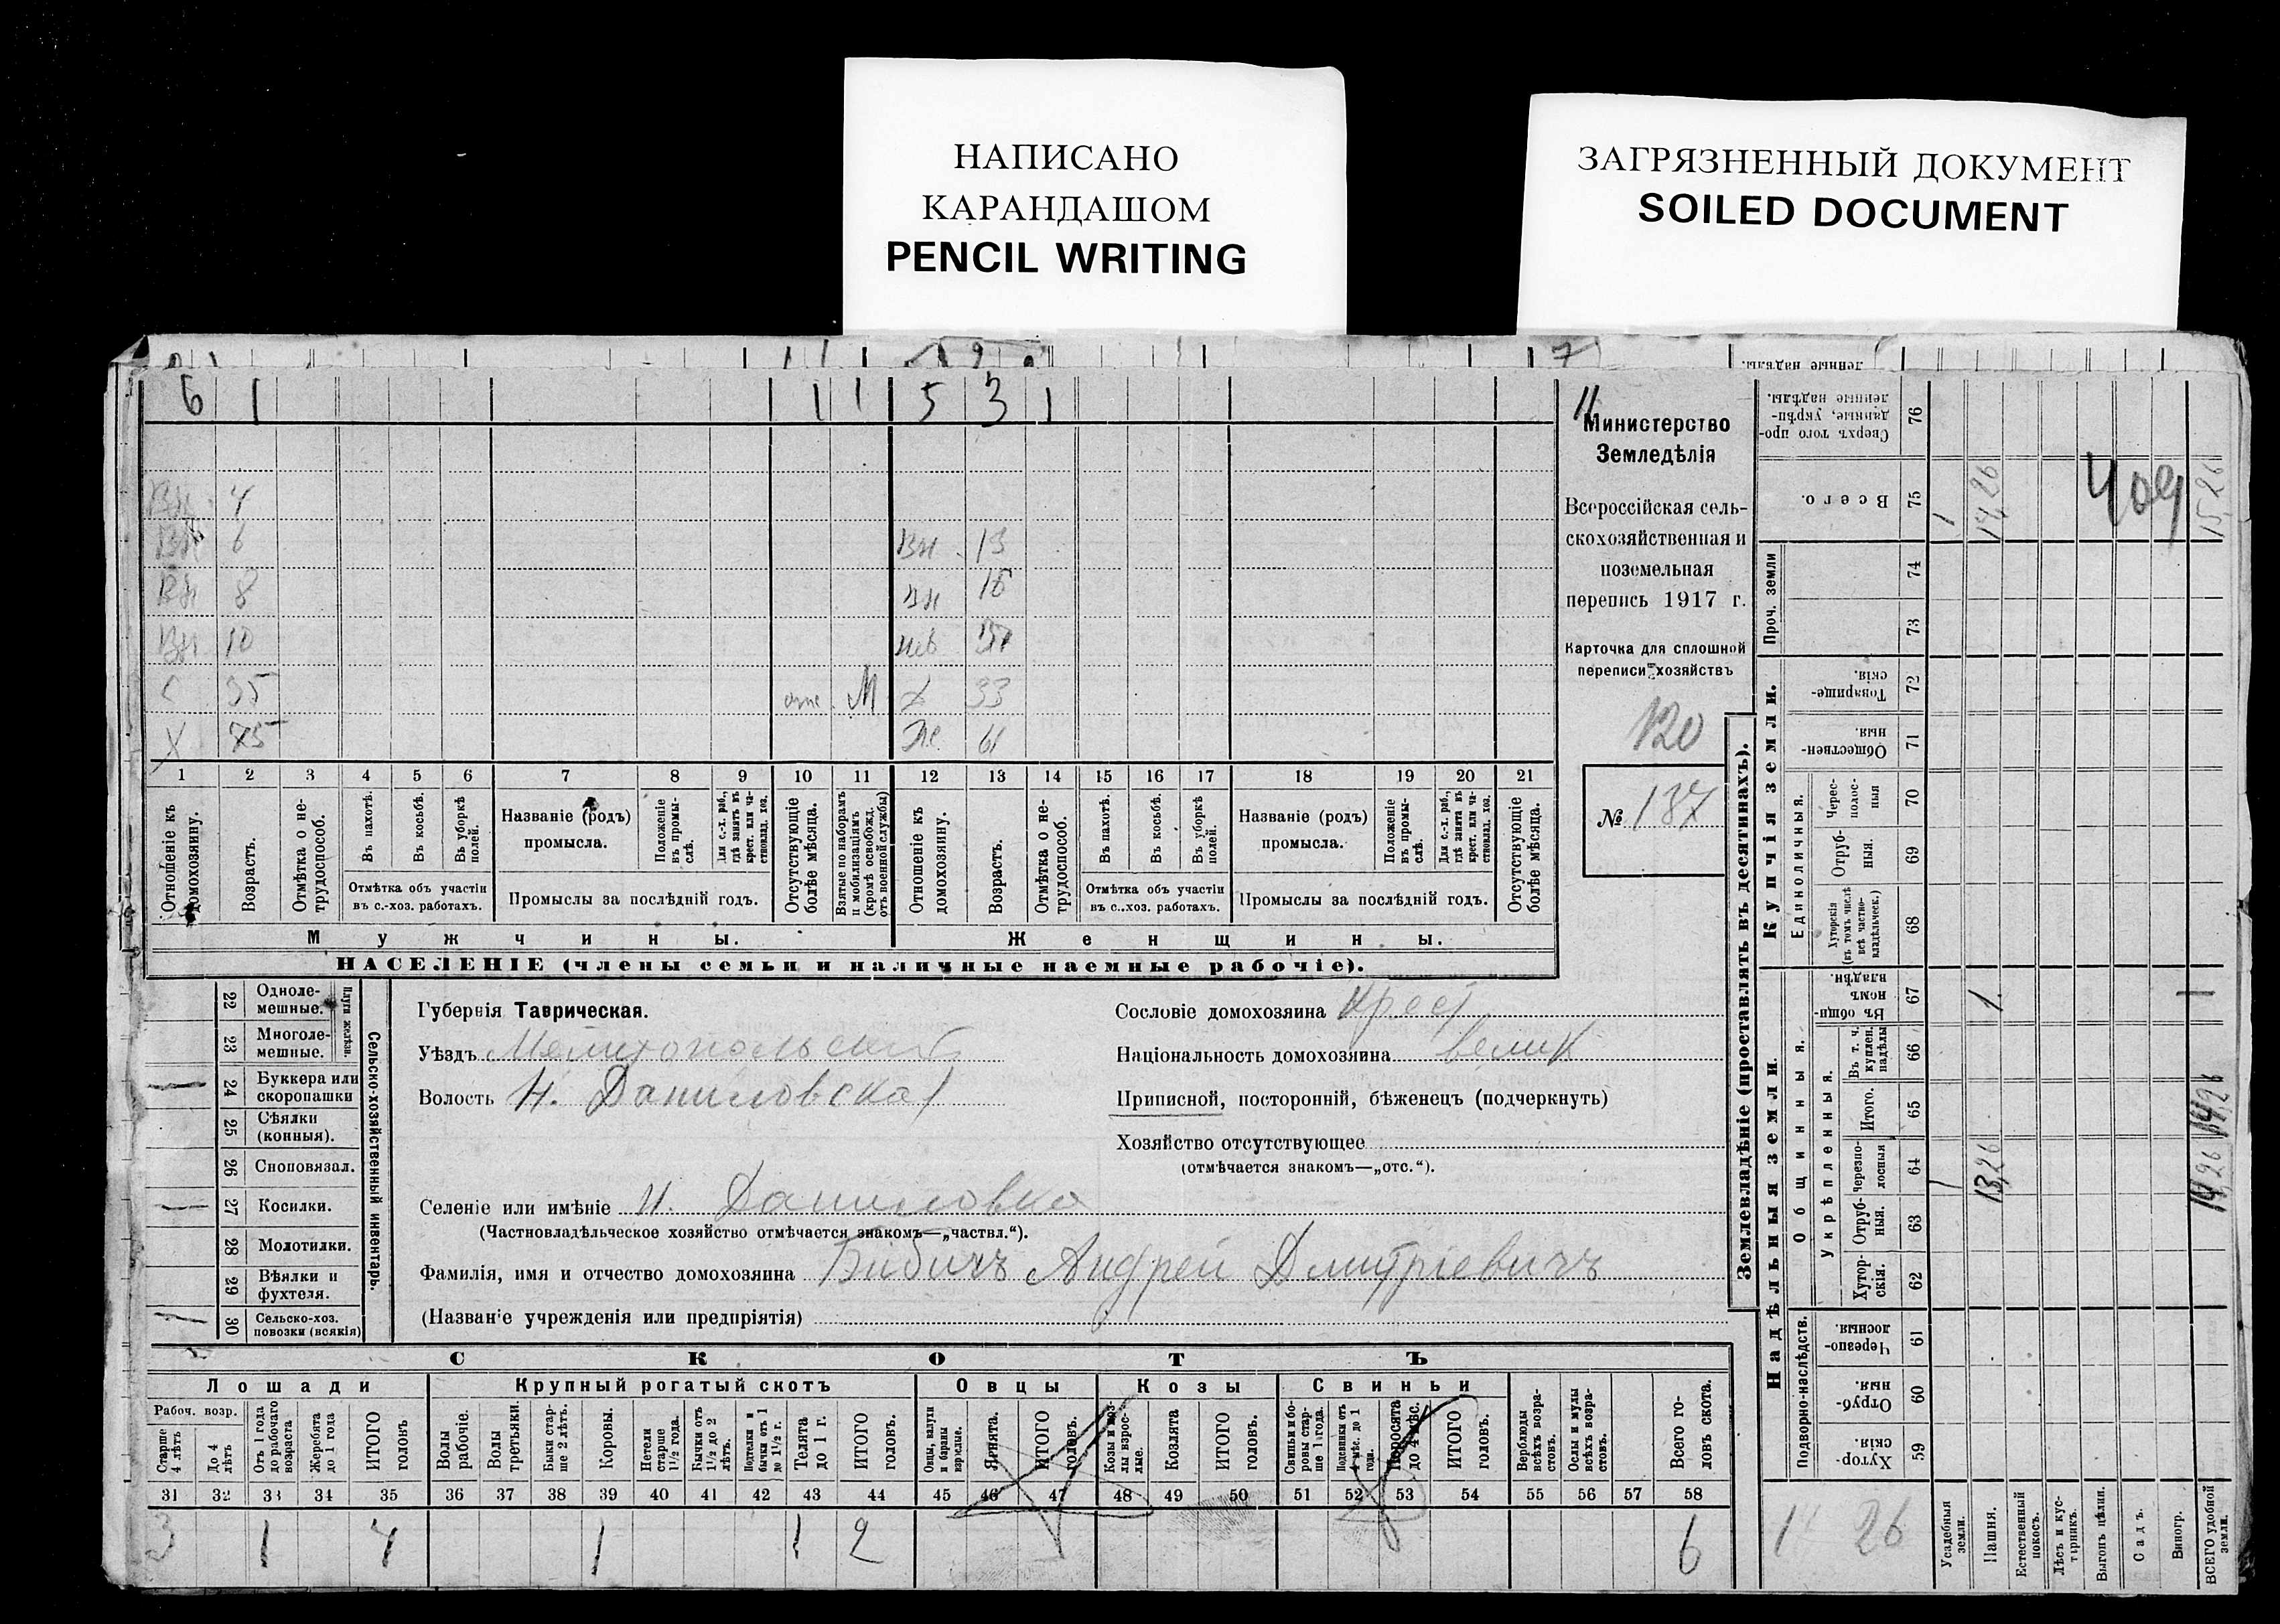 НАПИСАНО
КАРАНДАШОМ
PENCIL WRITING
ЗАГРЯЗНЕННЫЙ ДОКУМЕНТ
SOILED DOCUMENT
7
6 1 1 1 5 3 1
4
6 Вн 13
Вн 8 вн
Вн 10
С 35 отс М Х 33
Х 75 Же 61
1 2 3 4 5 6 7 8 9 10 11 12 13 14 15 16 17 18 19 20 21
Отношеніе къ домохозяину.
Возрастъ.
Отмѣтка о нетрудоспособ.
Въ пахотѣ.
Въ косьбѣ.
Въ уборкѣ полей.
Отмѣтка объ участіи
въ с.-хоз. работахъ.
Названіе (родъ)
промысла.
Положеніе въ промыслѣ.
Для с.-х. раб., гдѣ занятъ въ крест. или частновлад. хоз.
Промыслы за послѣдній годъ.
Отсутствующіе болѣе мѣсяца.
Взятые по наборамъ и мобилизаціямъ (кромѣ освобожд. отъ военной службы)
Отношеніе къ домохозяину.
Возрастъ.
Отмѣтка о нетрудоспособ.
Въ пахотѣ.
Въ косьбѣ.
Въ уборкѣ полей.
Отмѣтка объ участіи
въ с..хоз. работахъ.
Названіе (родъ)
промысла.
Положеніе въ промыслѣ.
Для с.-х. раб., гдѣ занята въ крест. или частновлад. хоз.
Промыслы за послѣдній годъ.
Отсутствующіе болѣе мѣсяца.
Мужчины.
Женщины.
НАСЕЛЕНІЕ (члены семьи и наличные наемные рабочіе).
11
Министерство
Земледѣлія
Всероссійская сель-
скохозяйственная и
поземельная
перепись 1917 г.
Карточка для сплошной
переписи хозяйствъ
120
№ 137
22 Одноле-
мешные.
23 Многоле-
мешные.
Плуги желѣзн.
24 Буккера или
скоропашки
25 Сѣялки
(конныя).
26 Сноповязал.
27 Косилки.
28 Молотилки.
29 Вѣялки и
фухтеля.
30 Сельско-хоз.
повозки (всякія)
Сельско-хозяйственный инвентарь.
Губернія Таврическая.
Уѣздъ Мелитопольскій
Волость Н. Даниловская
Селеніе или имѣніе Н. Даниловка
(Частновладѣльческое хозяйство отмѣчается знакомъ—„частвл.“).
Фамилія, имя и отчество домохозяина Бибичъ Андрей Дмитріевичъ
(Названіе учрежденія или предпріятія)
Сословіе домохозяина Крест
Національность домохозяина велик
Приписной, посторонній, бѣженецъ (подчеркнуть)
Хозяйство отсутствующее
(отмѣчается знакомъ—„отс.“).
СКОТЪ
Лошади
Крупный рогатый скотъ
Овцы
Козы
Свиньи
Рабоч. возр.
Старше 4 лѣтъ
До 4 лѣтъ
Отъ 1 года до рабочаго возраста
Жеребята до 1 года
ИТОГО головъ
Волы рабочіе.
Волы третьяки.
Быки старше 2 лѣтъ.
Коровы.
Нетели старше 1½ года.
Бычки отъ 1½ до 2 лѣтъ.
Подтелки и бычки отъ 1 до 1½ г.
Телята до 1 г.
ИТОГО головъ.
Овцы, валухи и бараны взрослые.
Ягнята.
ИТОГО головъ.
Козы и козлы взрослые.
Козлята
ИТОГО головъ.
Свиньи и боровы старше 1 года.
Подсвинки отъ 4 мѣс. до 1 года.
Поросята до 4 мѣс.
ИТОГО головъ.
Верблюды всѣхъ возрастовъ.
Ослы и мулы всѣхъ возрастовъ.
Всего головъ скота.
31 32 33 34 35 36 37 38 39 40 41 42 43 44 45 46 47 48 49 50 51 52 53 54 55 56 57 58
3 1 4 1 1 2 6
Землевладѣніе (проставлять въ десятинахъ).
Купчія земли.
Надѣльныя земли.
Сверхъ того проданные, укрѣпленные надѣлы. 76
Всего. 75
Проч. земли 74
73
Товарищескія. 72
Общественныя. 71
Единоличныя.
Чересполосныя 70
Отрубныя. 69
Хуторскія (въ томъ числѣ всѣ частновладѣльческ.) 68
Общинныя.
Въ общинномъ владѣн. 67
Укрѣпленныя.
Въ т. ч. куплен. надѣлы 66
Итого. 65
Черезполосныя 64
Отрубныя. 63
Хуторскія. 62
Подворно-наслѣдств.
Черезполосныя. 61
Отрубныя. 60
Хуторскія. 59
Усадебныя земли.
Пашня.
Естественный покосъ.
Лѣсъ и кустарникъ.
Выгонъ цѣлин.
Садъ.
Виногр.
ВСЕГО удобной земли.
1
14,26
409
15,26
1.
1
13,26
14,26
1 26